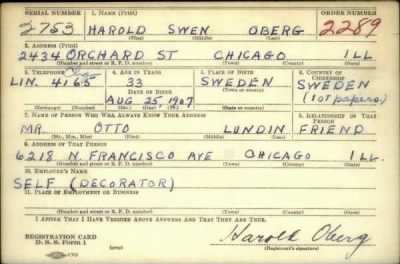 SERIAL NUMBER 1. NAME (Print) ORDER NUMBER
2753 HAROLD SWEN OBERG 2289
(First) (Middle) (Last)
2. ADDRESS (Print)
2434 ORCHARD ST CHICAGO ILL
(Number and street or R. F. D. number) (Town) (County) (State)
3. TELEPHONE 4. AGE IN YEARS 5. PLACE OF BIRTH 6. COUNTRY OF CITIZENSHIP
LIN. 4165 33 SWEDEN SWEDEN
DATE OF BIRTH
AUG 25 1907 (1ST PAPERS)
(Exchange) (Number) (Mo.) (Day) (Yr.) (State or country)
7. NAME OF PERSON WHO WILL ALWAYS KNOW YOUR ADDRESS 8. RELATIONSHIP OF THAT PERSON
MR. OTTO LUNDIN FRIEND
(Mr., Mrs., Miss) (First) (Middle) (Last)
9. ADDRESS OF THAT PERSON
6218 N. FRANCISCO AVE CHICAGO ILL.
(Number and street or R. F. D. number) (Town) (County) (State)
10. EMPLOYER'S NAME
SELF (DECORATOR)
11. PLACE OF EMPLOYMENT OR BUSINESS
(Number and street or R. F. D. number) (Town) (County) (State)
I AFFIRM THAT I HAVE VERIFIED ABOVE ANSWERS AND THAT THEY ARE TRUE.
REGISTRATION CARD
D. S. S. Form 1
Harold Oberg
(Registrant's signature)